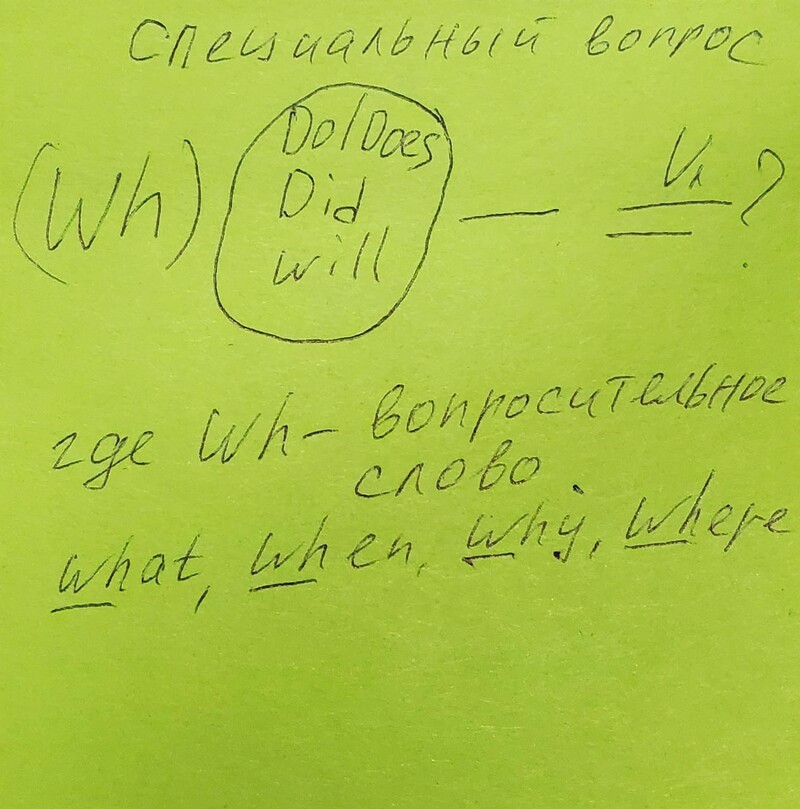 Специальный вопрос
(Wh) Do/Does Did will — V1 ?
где Wh – вопросительное
слово
what, when, why, where